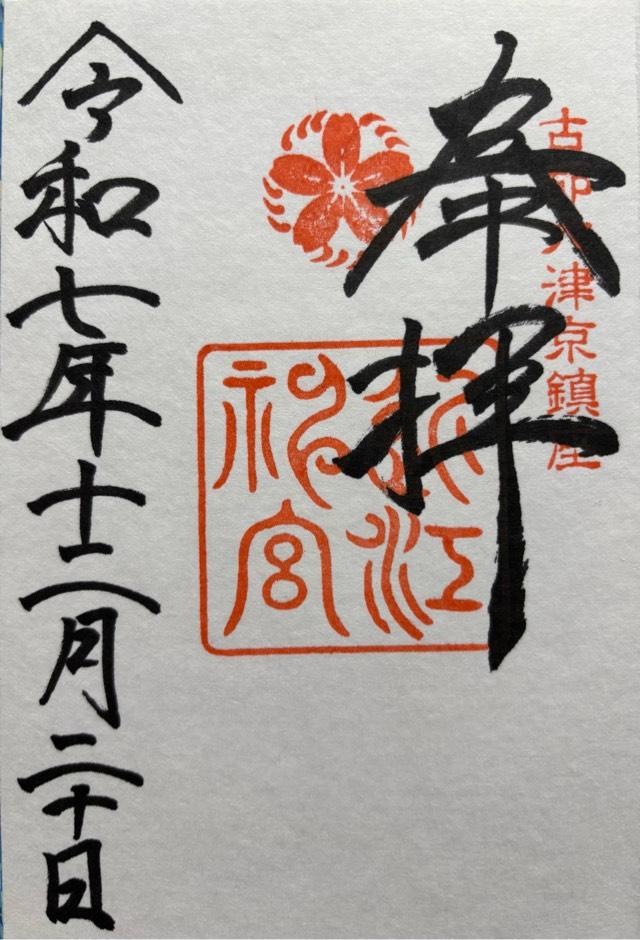 古都大津京鎮座
奉拝
近江
神宮
令和七年十二月二十日